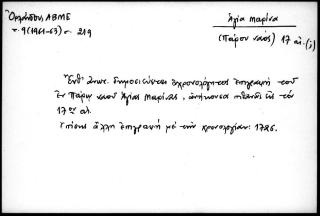 Ὀρλάνδος, ΑΒΜΕ
τ. 9 (1961-63) σ. 219
Ἁγία Μαρίνα
(Πάρου ναός) 17 αἰ. (;)
Ἐνθ' ἀνωτ. δημοσιεύεται ἀχρονολόγητος ἐπιγραφή τοῦ
ἐν Πάρῳ ναοῦ Ἁγίας Μαρίνας, ἀνήκουσα πιθανῶς εἰς τόν
17ον αἰ.
Ἐπίσης ἄλλη ἐπιγραφή μέ τήν χρονολογίαν: 1726.